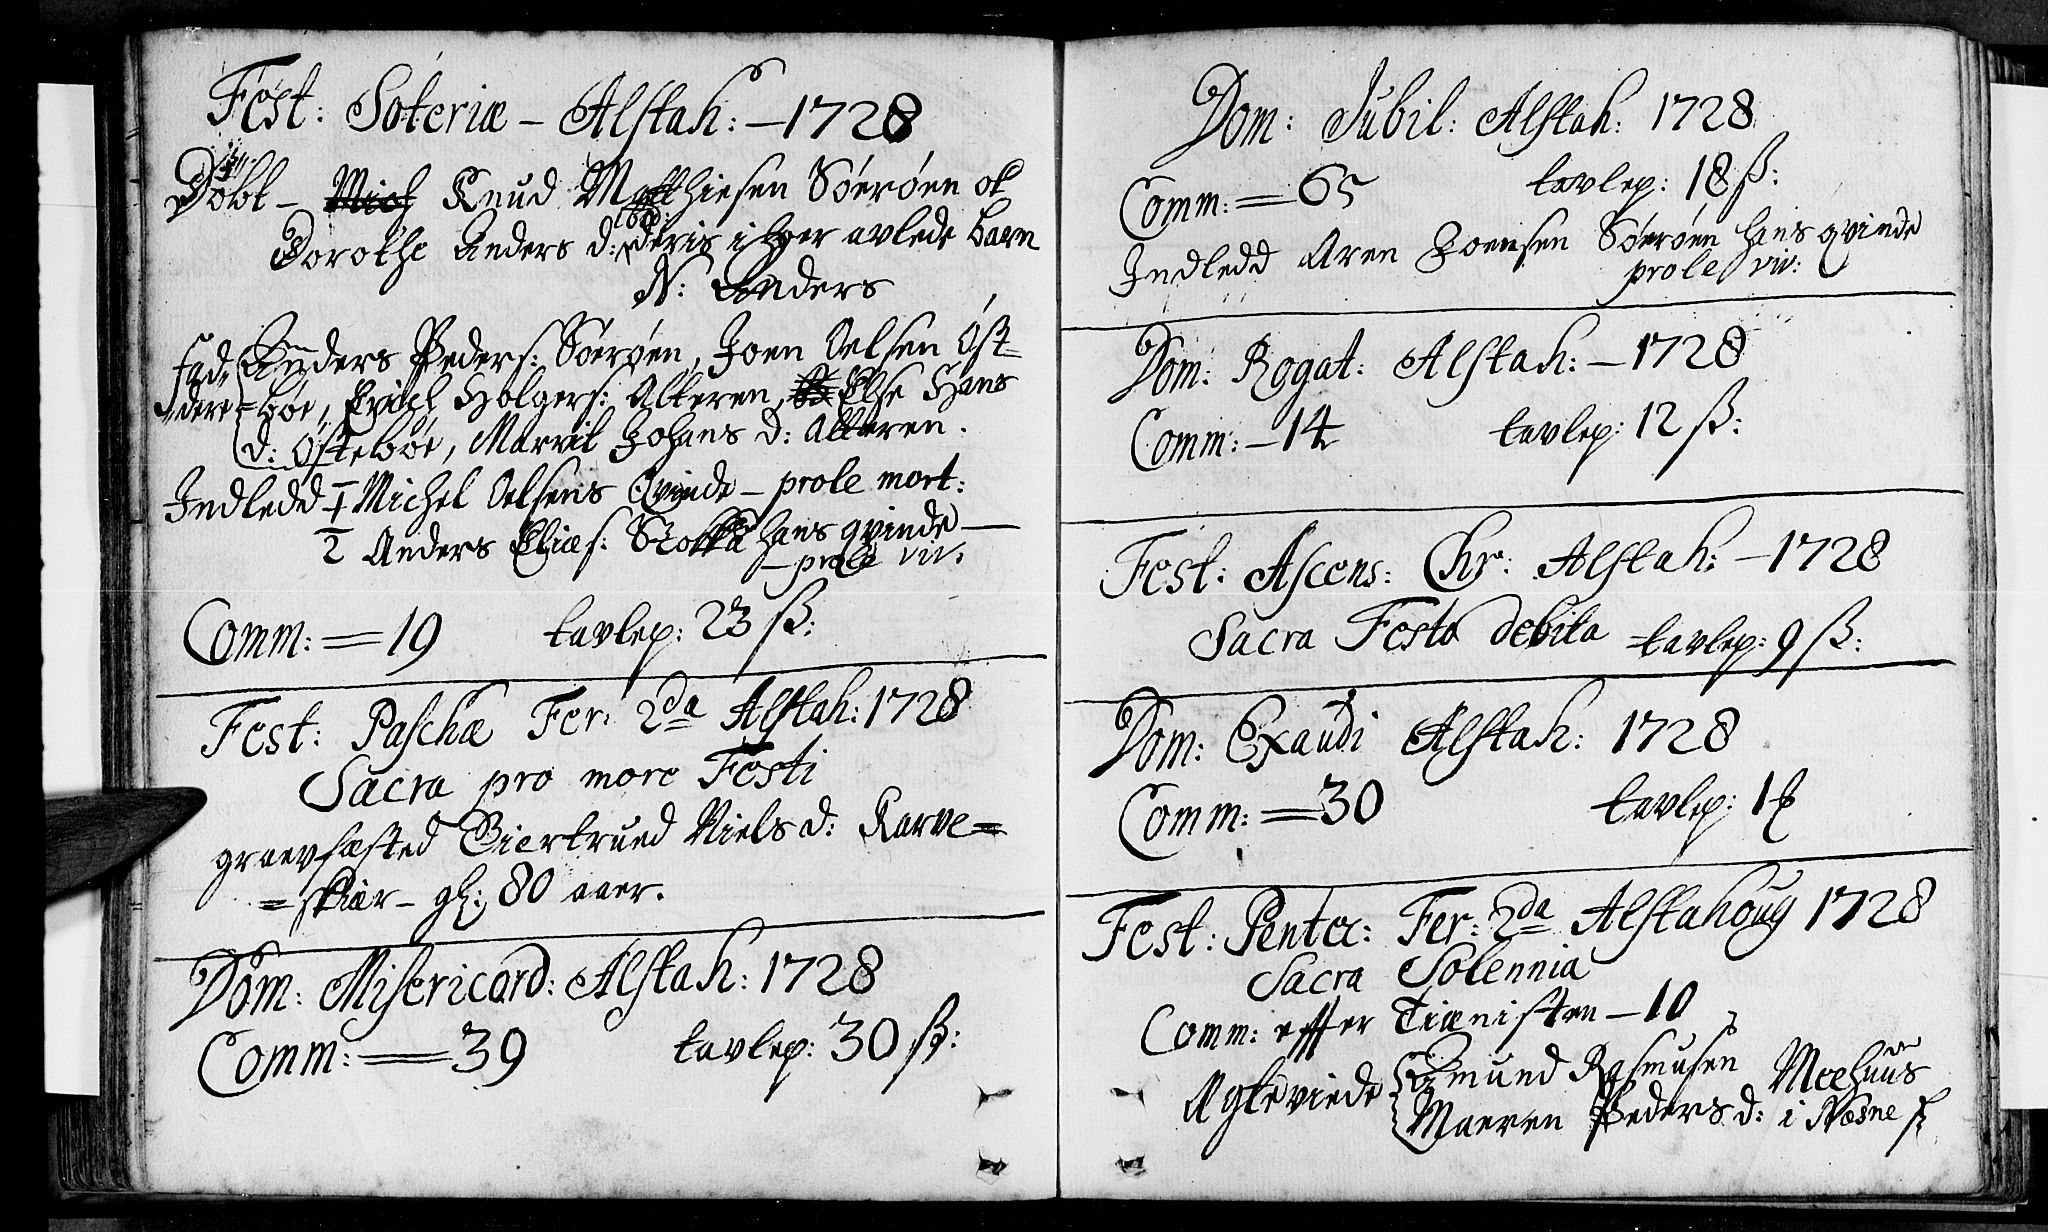 Fest: Soteriæ – Alstah: – 1728
Döbt – Knud Matthiesen Söeröen ok
Dorothe Anders d: deris i hoer avlede barn
N: Anders
fad- Anders Peders: Söeröen, Joen Oelsen Öst-
dere =böe, Erich Holgers: Alteren, Else Hans
d: Östeböe, Marrit Johans d: Alteren.
Indledd 1 Michel Oelsens Qvinde – prole mort:
2 Anders Eliæs: Stokka hans qvinde –
– prole viv:
Comm: = 19 tavlep: 23 ß:
Fest: Paschæ Fer: 2da Alstah: 1728
Sacra pro more Festi
graevfæsted Giertrued Niels d: Karve=
=skiær – gl: 80 aaer.
Dom: Misericord: Alstah: 1728
Comm: = 39 tavlep: 30 ß:
Dom: Jubil: Alstah: 1728
Comm: = 65 tavlep: 18 ß:
Indledd Aren Joensen Söeröen hans qvinde
prole viv:
Dom: Rogat: Alstah: – 1728
Comm: – 14 tavlep: 12 ß:
Fest: Ascens: Chr: Alstah: – 1728
Sacra Festo debita – tavlep: 9 ß:
Dom: Exaudi Alstah: 1728
Comm: = 30 tavlep: 1
Fest: Pentec: Fer: 2da Alstahoug 1728
Sacra Solennia
Comm: effter Tiænisten – 10
Ægteviede Amund Rasmusen Meehuus
Maeren Peders d: i Næsne